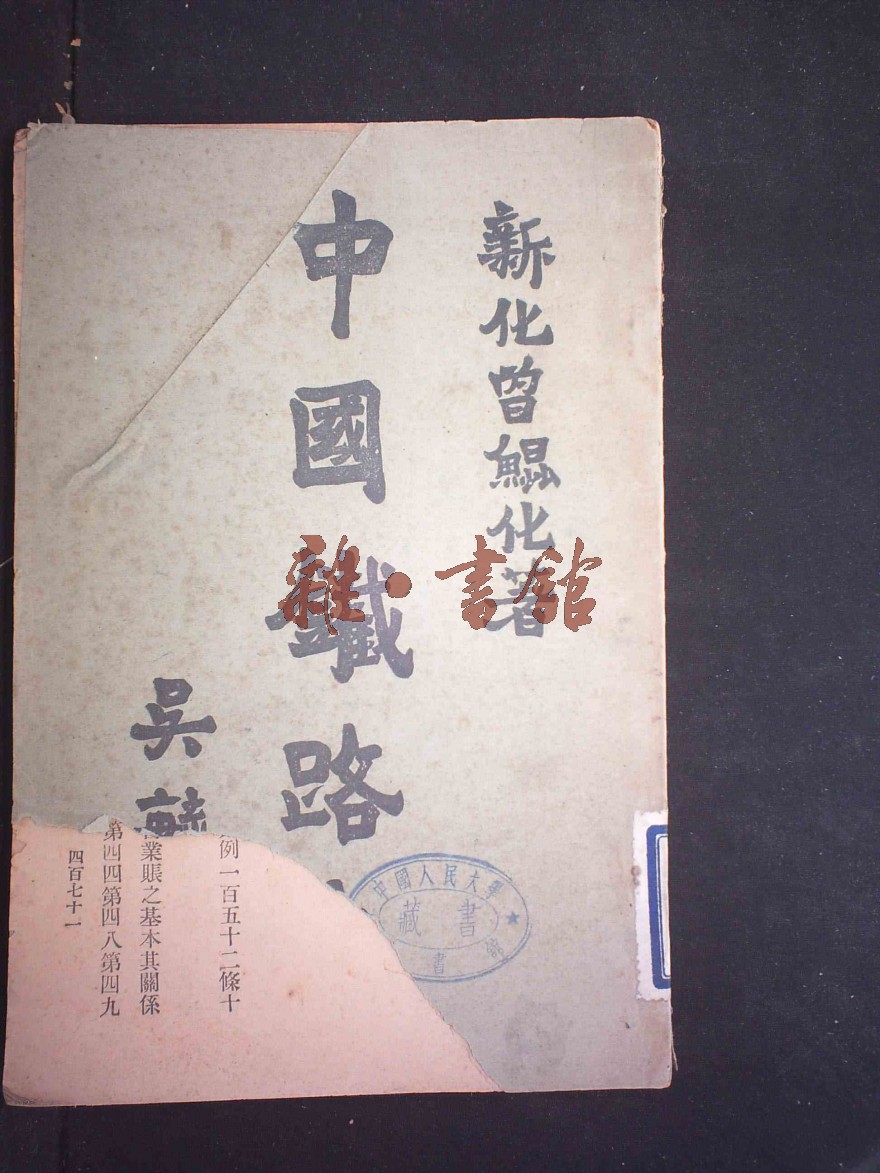 新化曾鯤化著
中國鐵路
吳
例一百五十二條十
業賬之基本其關係
第四四第四八第四九
四百七十一
中國人民大學
藏書
書
雜·書館